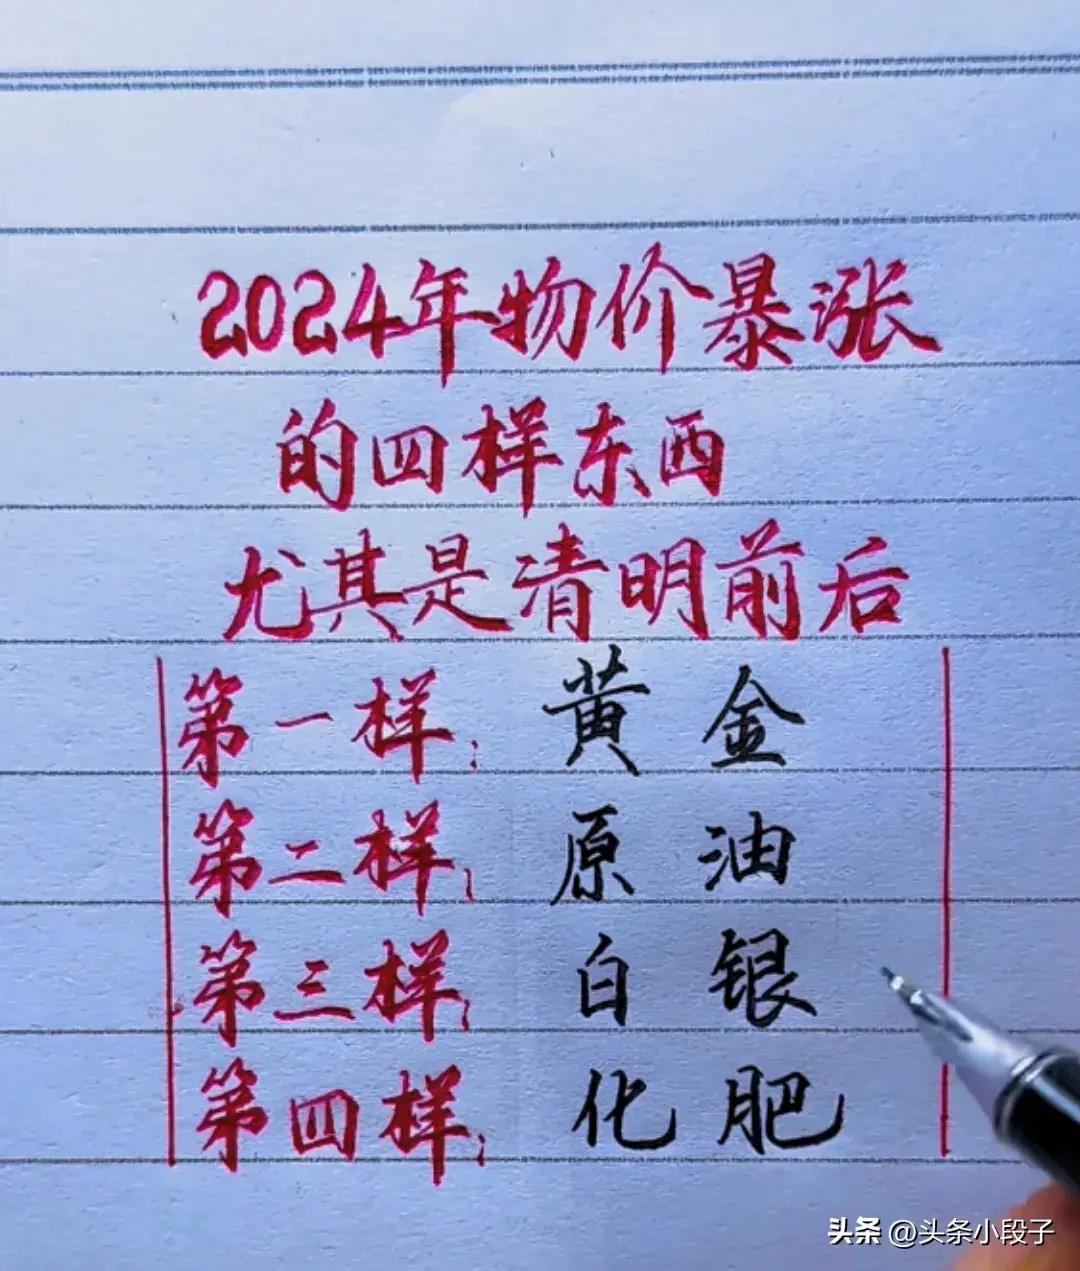 2024年物价暴涨
的四样东西
尤其是清明前后
第一样:黄金
第二样:原油
第三样:白银
第四样:化肥
头条 @头条小段子